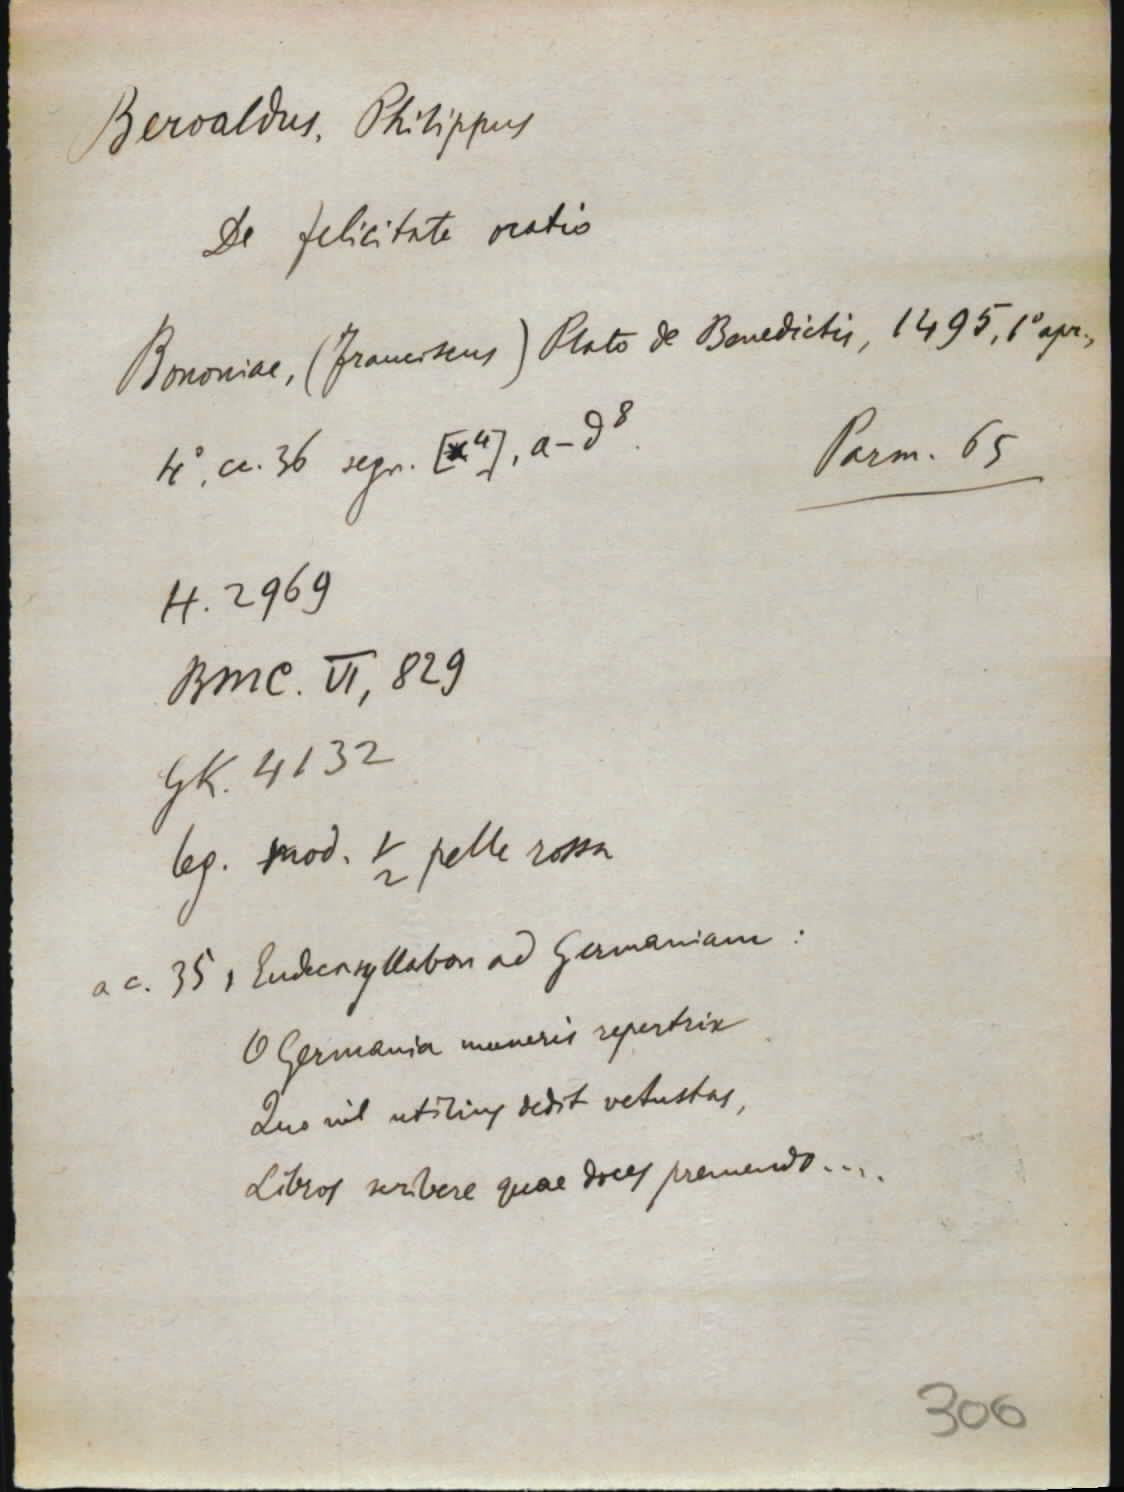 Beroaldus, Philippus
De felicitate oratio
Bononiae, (Franciscus) Plato de Benedictis, 1495, 1° apr.,
4°, cc. 36 segn. [*4], a-d8.
Parm. 65
H. 2969
BMC. VI, 829
GK. 4132
leg. mod. 1/2 pelle rossa
a c. 35, Endecasyllabon ad Germaniam:
O Germania muneris repertrix
Quo nil utilius dedit vetustas,
Libros scribere quae doces premendo....
306